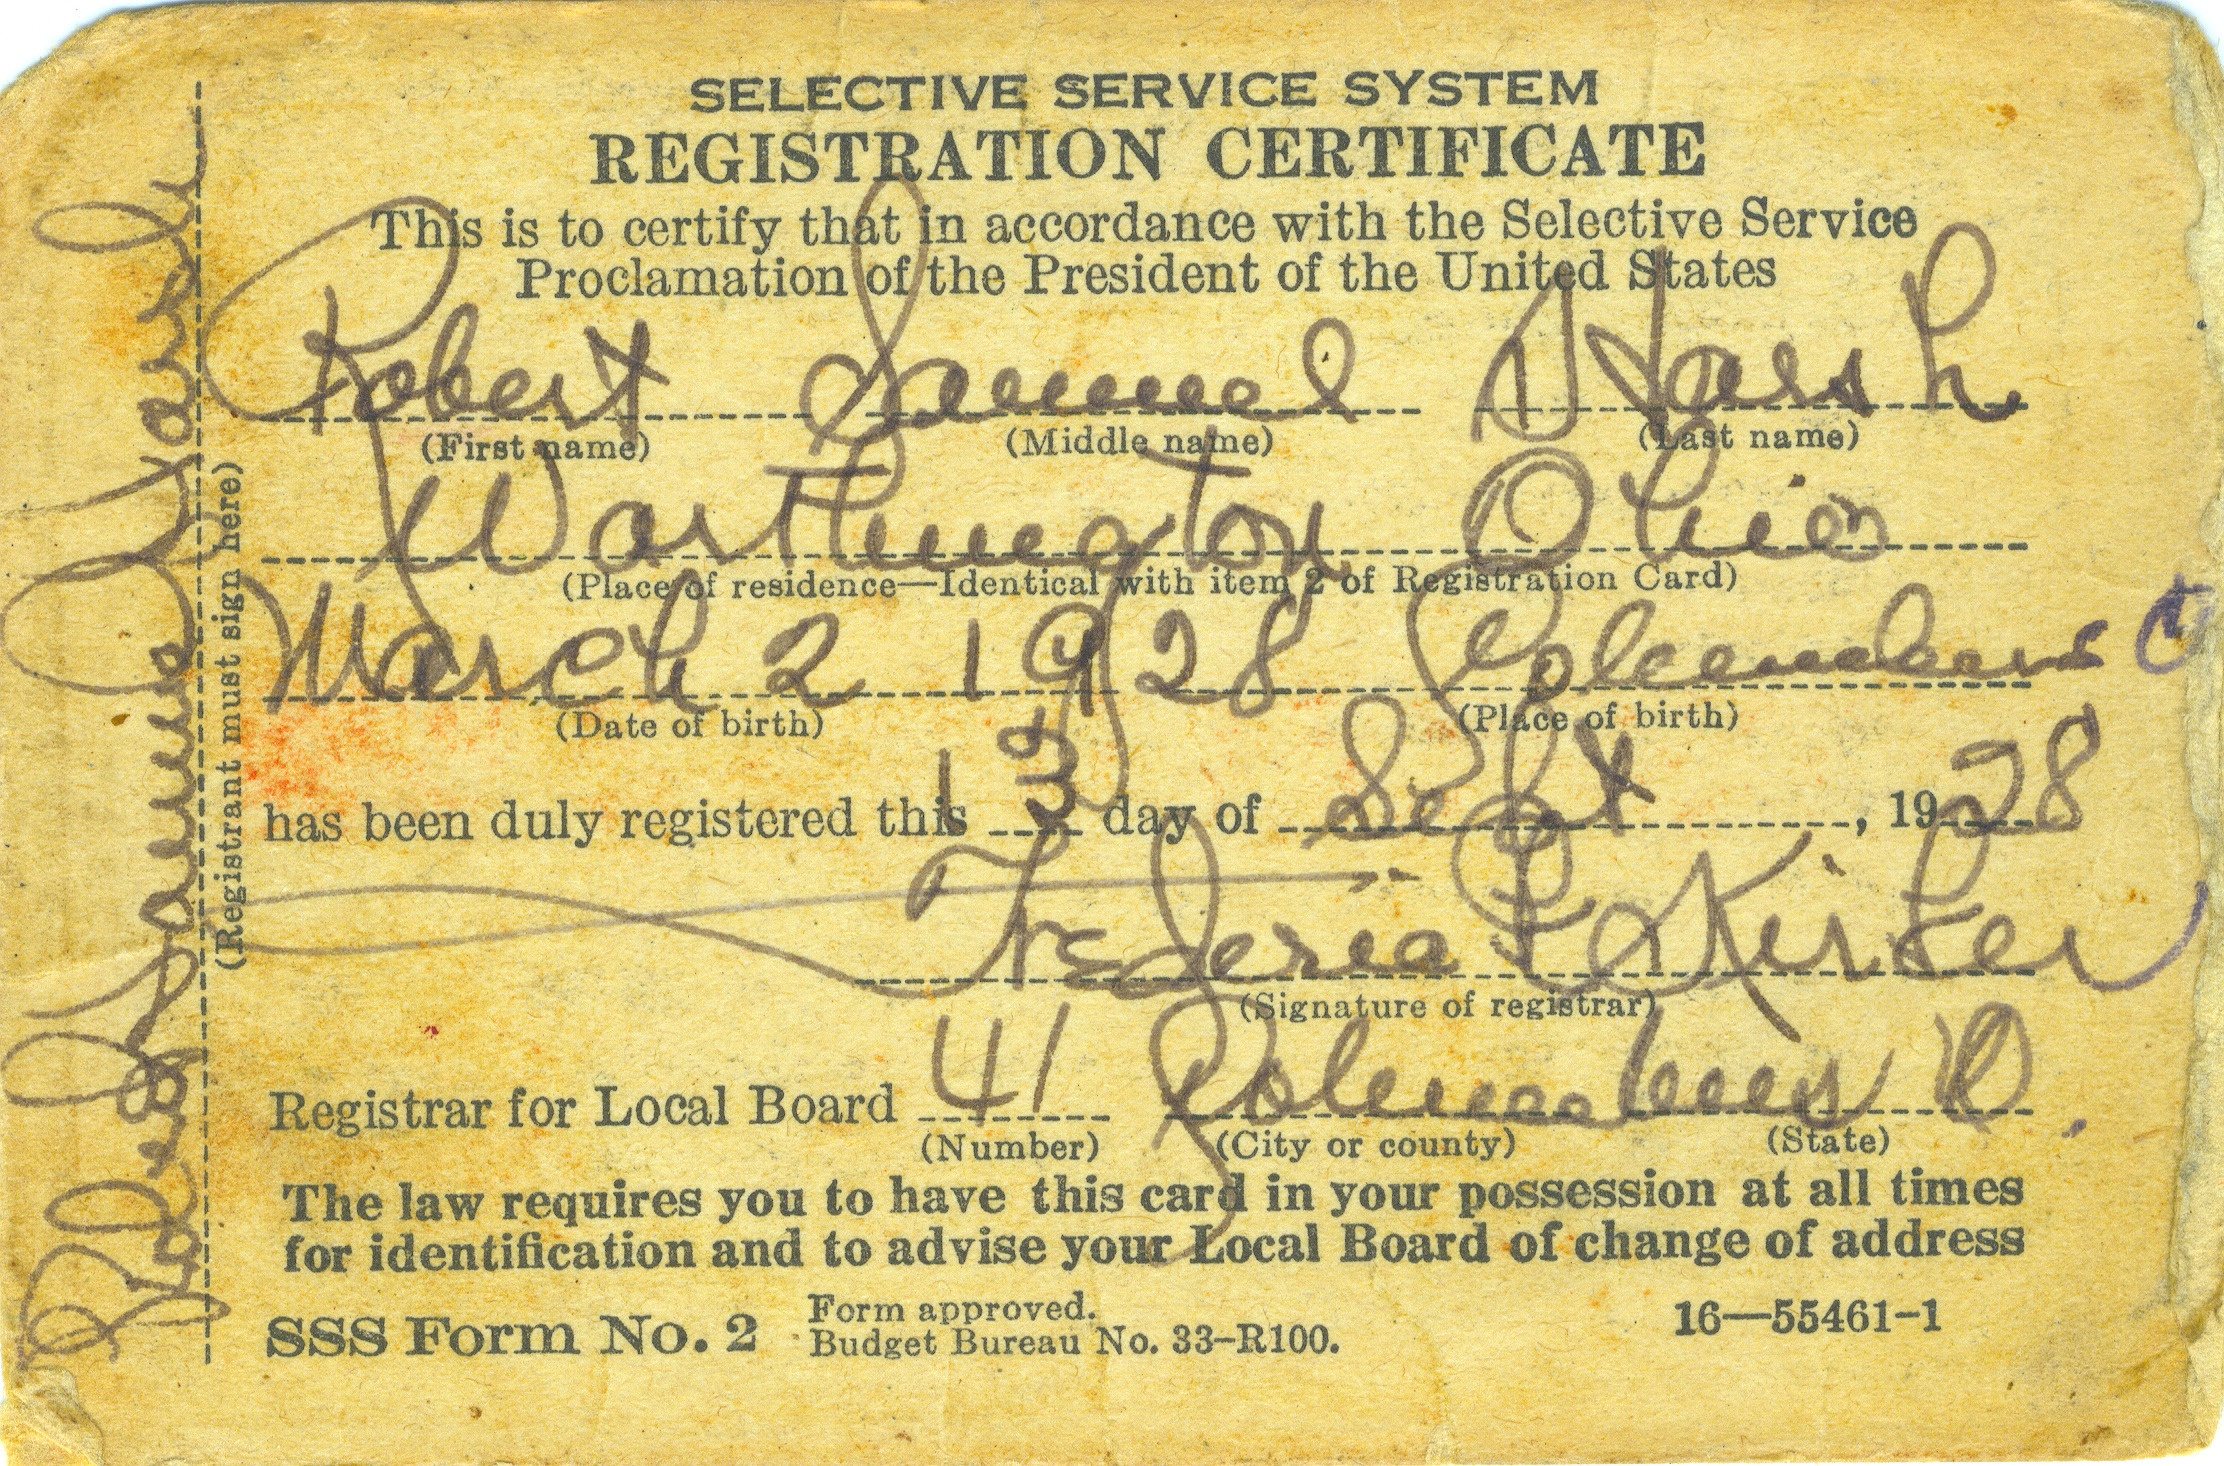 SELECTIVE SERVICE SYSTEM
REGISTRATION CERTIFICATE
This is to certify that in accordance with the Selective Service
Proclamation of the President of the United States
Robert Samuel Harsh
(First name) (Middle name) (Last name)
Worthington Ohio
(Place of residence—Identical with item 2 of Registration Card)
March 2 1928 Columbus O
(Date of birth) (Place of birth)
has been duly registered this 13 day of Sept, 1928
Kirker
(Signature of registrar)
Registrar for Local Board 41 Columbus O.
(Number) (City or county) (State)
The law requires you to have this card in your possession at all times
for identification and to advise your Local Board of change of address
SSS Form No. 2 Form approved.
Budget Bureau No. 33-R100.
16—55461-1
Robert Samuel Harsh
(Registrant must sign here)